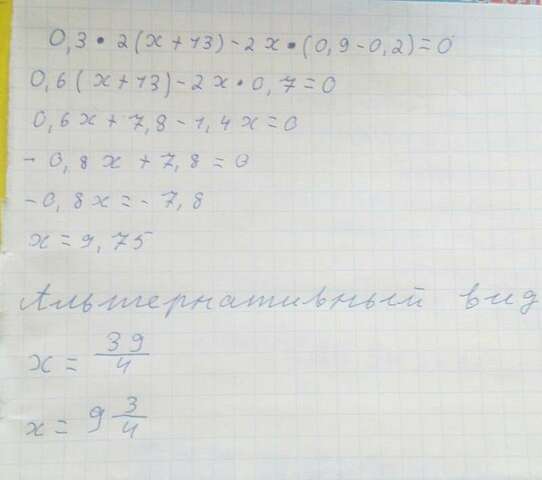 0,3 • 2(x+13)-2x•(0,9-0,2)=0
0,6(x+13)-2x•0,7=0
0,6x+7,8-1,4x=0
-0,8x+7,8=0
-0,8x=-7,8
x=9,75
Альтернативный вид
x= 39/4
x= 9 3/4